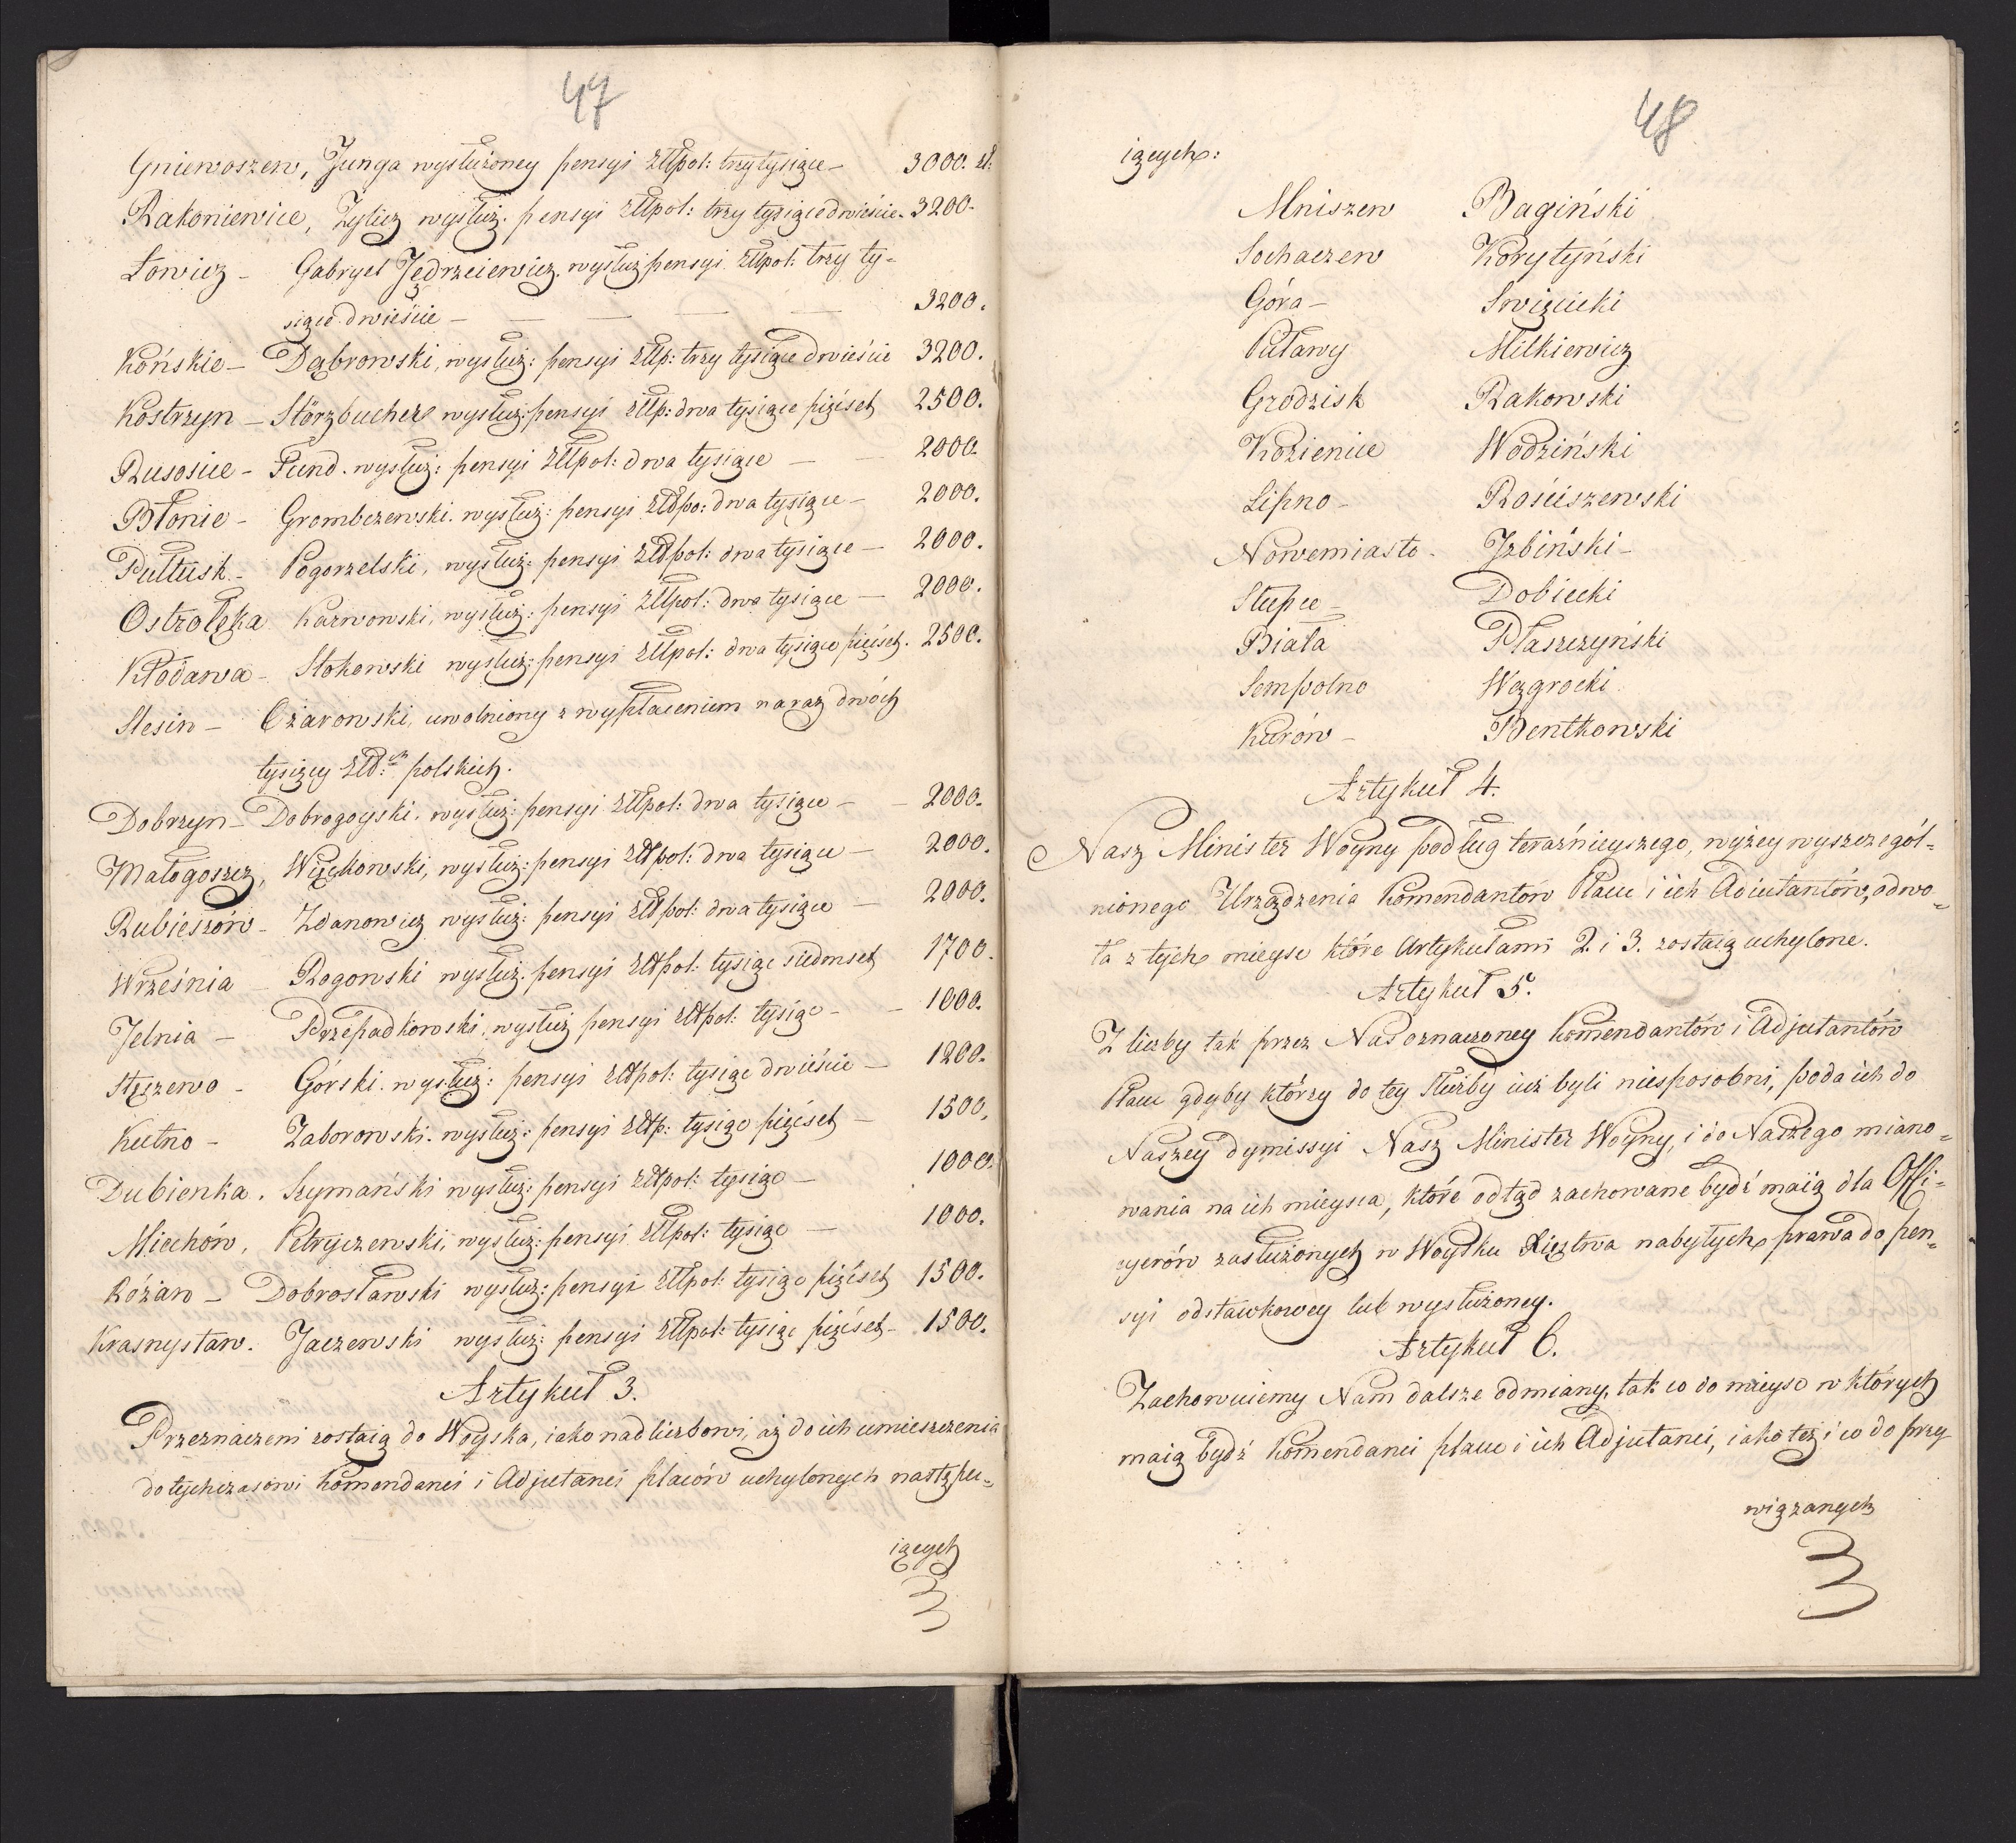 47
Gniewoszew, Junga wysłużoney pensyi Złłpol: trzy tysiące — 3000. zł:
Rakoniewice, Zylicz wysłuż. pensyi Złłpol: trzy tysiące dwieście. 3200.
Łowicz — Gabryel Jędrzeiewicz. wysłuż pensyi Złłpol: trzy ty-
siące dwieście — — — — — 3200.
Końskie — Dąbrowski, wysłuż: pensyi Złłp: trzy tysiące dwieście 3200.
Kostrzyn — Störzbucher wysłuż: pensyi Złłp: dwa tysiące pięćset 2500.
Rusosice — Fund. wysłuż: pensyi Złłpol: dwa tysiące — — 2000.
Błonie — Grombczewski. wysłuż: pensyi Złłpo: dwa tysiące — 2000.
Pułtusk — Pogorzelski, wysłuż: pensyi Złłpol: dwa tysiące — 2000.
Ostrołęka Karwowski, wysłuż: pensyi Złłpol: dwa tysiące — 2000.
Kłodawa — Stokowski wysłuż: pensyi Złłpol: dwa tysiące pięćset. 2500.
Slesin — Ożarowski, uwolniony z wypłaceniem naraz dwóch
tysięcy Złł:ch polskich.
Dobrzyn — Dobrogoyski. wysłuż: pensyi Złłpol: dwa tysiące — — 2000.
Małogoszcz, Więckowski, wysłuż: pensyi Złłpol: dwa tysiące — 2000.
Rubieszów — Zdanowicz wysłuż: pensyi Złłpol: dwa tysiące — 2000.
Września — Rogowski wysłuż: pensyi Złłpol: tysiąc siedmset 1700.
Jelnia — Przepadkowski, wysłuż pensyi Złłpol: tysiąc — — 1000.
Stęszewo — Górski. wysłuż: pensyi Złłpol: tysiąc dwieście — 1200.
Kutno — Zaborowski. wysłuż: pensyi Złłp: tysiąc pięćset — 1500.
Dubienka. Szymański wysłuż: pensyi Złłpol: tysiąc — 1000.
Miechów, Petryczewski, wysłuż: pensyi Złłpol: tysiąc — 1000.
Różan — Dobrosławski wysłuż: pensyi Złłpol: tysiąc pięćset 1500.
Krasnystaw. Jaczewski wysłuż: pensyi Złłpol: tysiąc pięćset — 1500.
Artykuł 3.
Przeznaczeni zostaią do Woyska, iako nadliczbowi, aż do ich umieszczenia
dotychczasowi Komendanci i Adjutanci placów uchylonych nastęPu-
iących
48
iących:
Mniszew Bagiński
Sochaczew Korytyński
Góra — Swięcicki
Puławy Milkiewicz
Grodzisk Rakowski
Kozienice Wodziński
Lipno — Rościszewski
Nowemiasto — Jzbiński —
Słupce — Dobiecki
Biała Płaszczyński
Sempolno Węgrocki
Kurów — Bentkowski
Artykuł 4.
Nasz Minister Woyny podług teraźnieyszego, wyżey wyszczegól-
nionego Urządzenia Komendantów Placu i ich Adiutantów, odwo-
ła z tych mieysc które Artykułami 2. i 3. zostaią uchylone.
Artykuł 5.
Z liczby tak przez Nas oznaczoney Komendantów i Adjutantów
Placu gdyby którzy do tey służby iuż byli niesposobni, poda ich do
Naszey dymissyi Nasz Minister Woyny, i do Naszego miano-
wania na ich mieysca, które odtąd zachowane bydź maią dla Offi-
cyerów zasłużonych w Woysku Xięztwa nabytych prawa do pen-
syi odstawkowey lub wysłużoney.
Artykuł 6.
Zachowuiemy Nam dalsze odmiany, tak co do mieysc w których
maią bydź Komendanci placu i ich Adjutanci, iako też i co do przy
wiązanych